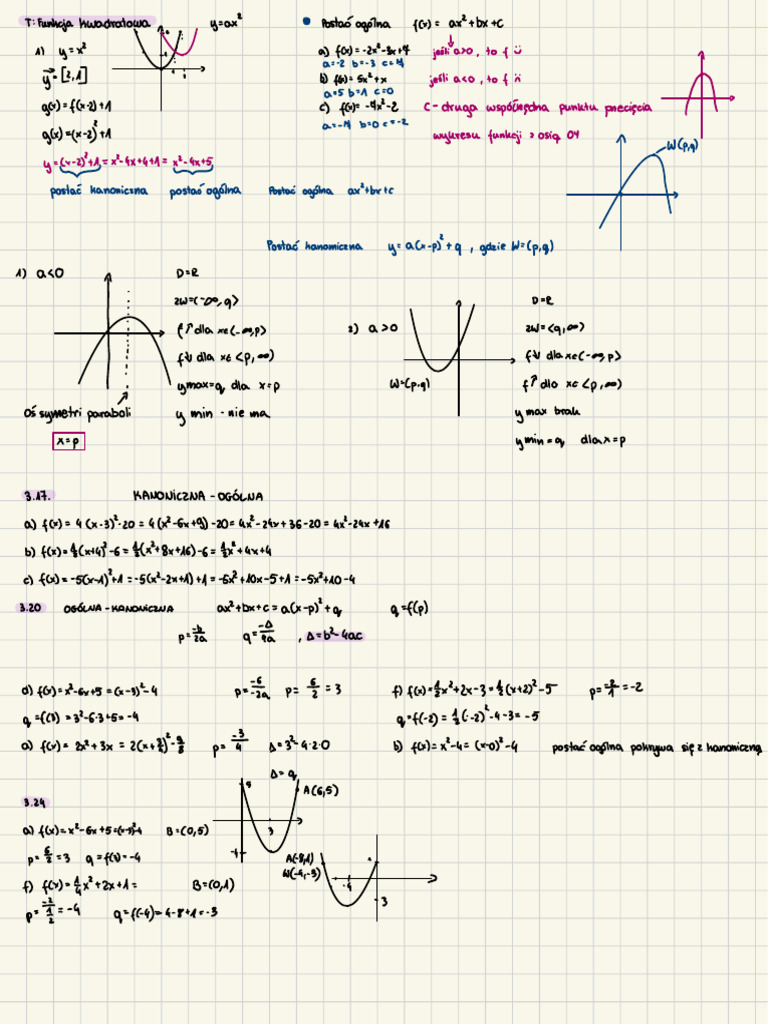 T: Funkcja kwadratowa
y=ax²
1) y = x²
y⃗ = [2,1]
g(x) = f(x-2)+1
g(x) = (x-2)²+1
y = (x-2)²+1 = x²-4x+4+1 = x²-4x+5
postać kanoniczna postać ogólna Postać ogólna ax²+bx+c
Postać ogólna f(x) = ax²+bx+c
a) f(x) = -2x²-3x+4
a=-2 b=-3 c=4
b) f(x) = 5x²+x
a=5 b=1 c=0
c) f(x) = -4x²-2
a=-4 b=0 c=-2
jeśli a>0, to f
jeśli a<0, to f
c - druga współrzędna punktu przecięcia
wykresu funkcji z osią OY
W(p,q)
Postać kanoniczna y = a(x-p)²+q , gdzie W=(p,q)
1) a<0
D=R
ZW=(-∞,q)
f↗ dla x∈(-∞,p)
f↘ dla x∈<p,∞)
ymax=q dla x=p
y min - nie ma
Oś symetri paraboli
x=p
2) a>0
W=(p,q)
D=R
ZW=<q,∞)
f↘ dla x∈(-∞,p>
f↗ dla x∈<p,∞)
y max brak
ymin=q dla x=p
3.17. KANONICZNA - OGÓLNA
a) f(x) = 4(x-3)²-20 = 4(x²-6x+9)-20 = 4x²-24x+36-20 = 4x²-24x+16
b) f(x) = ½(x+4)²-6 = ½(x²+8x+16)-6 = ½x²+4x+4
c) f(x) = -5(x-1)²+1 = -5(x²-2x+1)+1 = -5x²+10x-5+1 = -5x²+10-4
3.20 OGÓLNA - KANONICZNA ax²+bx+c = a(x-p)²+q q=f(p)
p=-b/2a q=-Δ/4a , Δ=b²-4ac
d) f(x) = x²-6x+5 = (x-3)²-4 p=-6/-2a p=6/2=3
q=f(3)=3²-6·3+5=-4
a) f(x) = 2x²+3x = 2(x+3/4)²-9/8 p=-3/4 Δ=3²-4·2·0
Δ=9
f) f(x) = ½x²+2x-3 = ½(x+2)²-5 p=-2/1=-2
q=f(-2)=½(-2)²-4-3=-5
b) f(x) = x²-4 = (x-0)²-4 postać ogólna pokrywa się z kanoniczną
3.24
a) f(x) = x²-6x+5 = (x-3)²-4 B=(0,5)
p=6/2=3 q=f(3)=-4
5
A(6,5)
3
-4
f) f(x) = ¼x²+2x+1 = B=(0,1)
p=-2/½=-4 q=f(-4)=4-8+1=-3
A(-8,1)
W(-4,-3)
-4
3